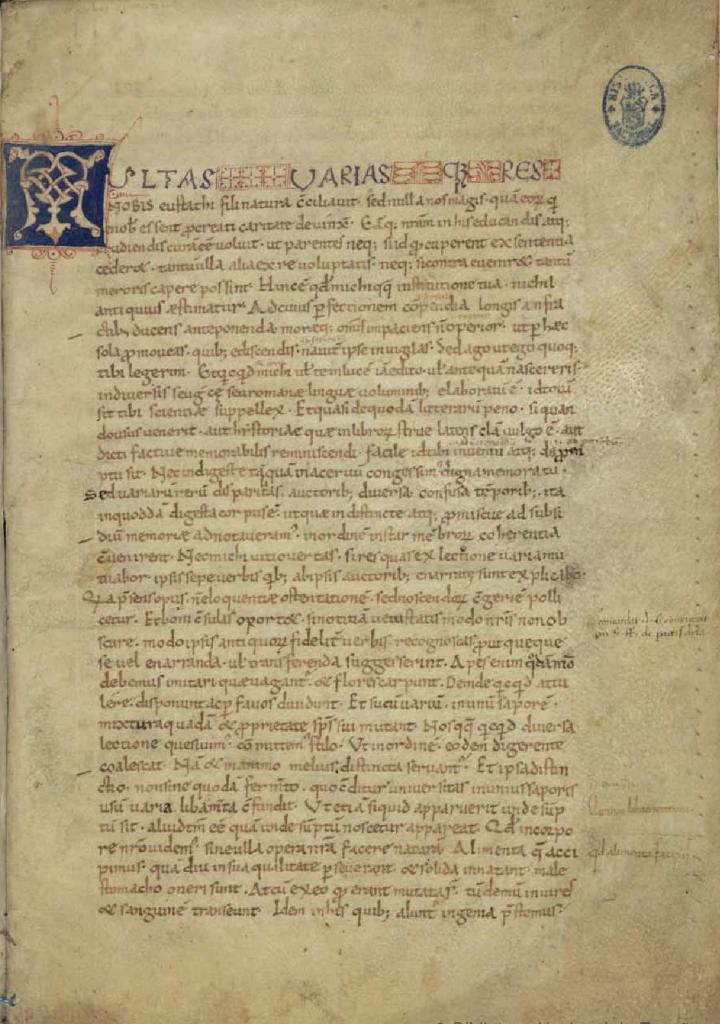 MULTAS VARIASQ; RES
INOBIS eustachi fili natura cciliauit. sed nullanos magis. quā eorꝝ q̄
enobˢ essent ꝓcreati caritate deuinxit. Eaq; nrām in his educandis atq;
erudiendis curā eē uoluit. ut parentes neq; si id qd cuperent ex sententia
cederet. tantū ulla alia ex re uoluptatis. neq; si contra eueniret tantū
meroris capere possint. Hinc ē qd michi quoq; institutione tua. nichil
antiquius æstimatur. Ad cuius ꝑfectionem cōpendia longis anfra
ctibˢ ducens anteponenda. moræq; omnis impaciens ñ operior. ut ꝑ hæc
sola ꝓmoueas. quibˢ ediscendis. nauit ipse inuigilas. Sed ago ut ego quoq;
tibi legerim. Et qcqd michi ul te in lucē iā edito. ul antequā nasceréris
in diuersis seu grecē seu romanæ linguæ uoluminibˢ elaboratū ē. id totū
sit tibi scientiæ suppellex. Et quasi de quodā litterarū peno. si quan
do usus uenerit. aut historiæ quæ in librorꝝ strue latens clā uulgo ē. aut
dicti factiue memorabilis reminiscendi. facile id tibi inuentu atq; depm
ptu sit. Nec indigeste tāquā in aceruū congessim digna memoratu.
Sed uariarū rerū disparilitas. auctoribˢ diuersa. confusa tēporibˢ. ita
in quoddā digesta corpus ē. ut quæ indistincte atq; ꝓmiscue ad subsi
diū memoriæ adnotaueramˢ. in ordinē instar mēbrorꝝ coherentia
cuenirent. Neo michi uitio uertas. si res quas ex lectione uaria mu
tuabor. ipsis sepe uerbis qbˢ ab ipsis auctoribˢ enarratę sunt explicabo.
Qa p̄sens opus. ñ eloquentiæ ostentationē. sed noscendorꝝ cgeriē polli
cetur. Et boni csulas oportet. si notitiā uetustatis modo nr̄is non ob
scure. modo ipsis antiquorꝝ fidelit uerbis recognoscas. ꝓut queque
se uel enarranda. ul transferenda suggesserint. Apes enim qdāmo
debemus imitari quæ uagant. et flores carpunt. Deinde qcqd attu
lere. disponunt ac ꝑ fauos diuidunt. Et sucū uariū. in unū saporē.
mixtura quadā et ꝓprietate sp̄s sui mutant. Nos qq qcqd diuersa
lectione quesiuimˢ. cōmittemˢ stilo. Ut in ordinē. eodem digerente
coalescat. Nā et in animo melius distincta seruantˢ. Et ipsa distin
ctio. non sine quodā fermto. quo cditur uniuersitas in unius saporis
usū uaria libamta cfundit. Ut etiā siquid apparuerit unde sūp
tū sit. aliud tm̄ eē quā unde sūptū noscetur appareat. Qd in corpo
re nr̄o uidemˢ. sine ulla opera nr̄a facere naturā. Alimenta q̄ acci
pimus. quā diu in sua qualitate ꝑseuerant. et solida innatant. male
stomacho oneri sunt. At cū ex eo qd erant mutata s̄. tū demū in uires
et sanguinē transeunt. Idem in his quibˢ aluntˢ ingenia p̄stemus.